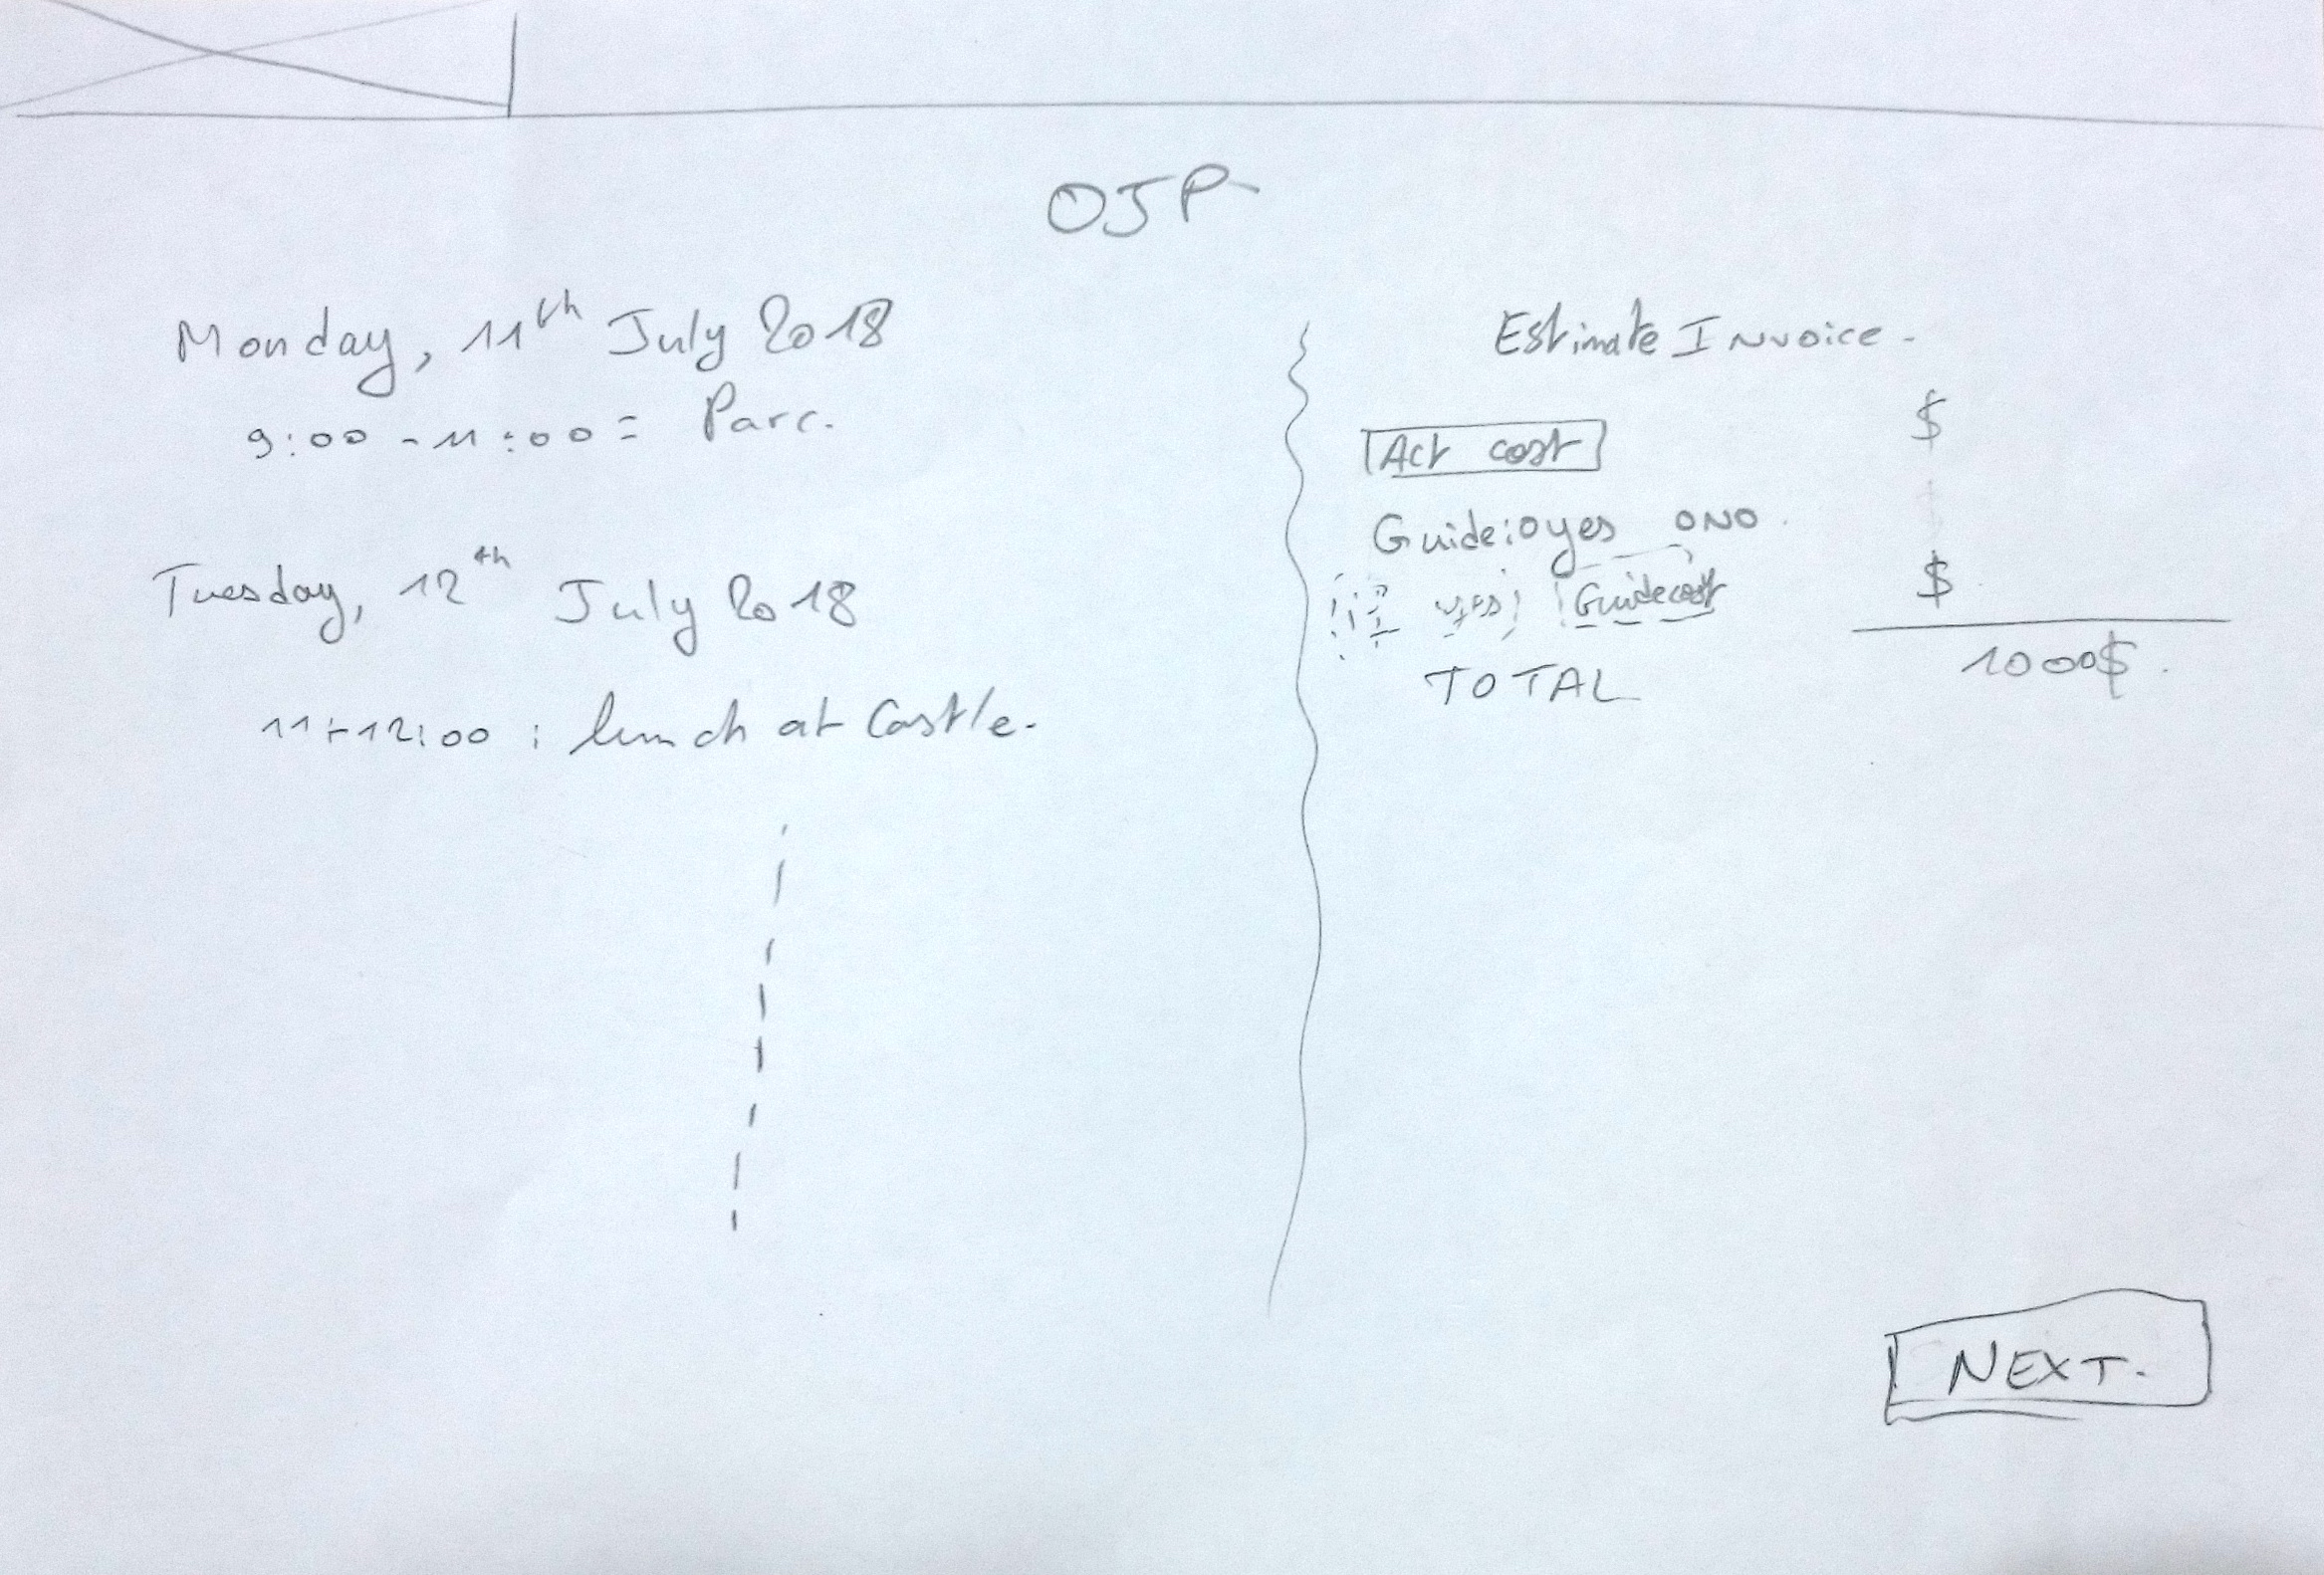 OJP
Monday, 11th July 2018
9:00 - 11:00 = Parc.
Tuesday, 12th July 2018
11 - 12:00 : lunch at Castle.
Estimate Invoice.
Act cost $
Guide: O yes O NO.
if yes Guide cost $
TOTAL 1000$.
NEXT.